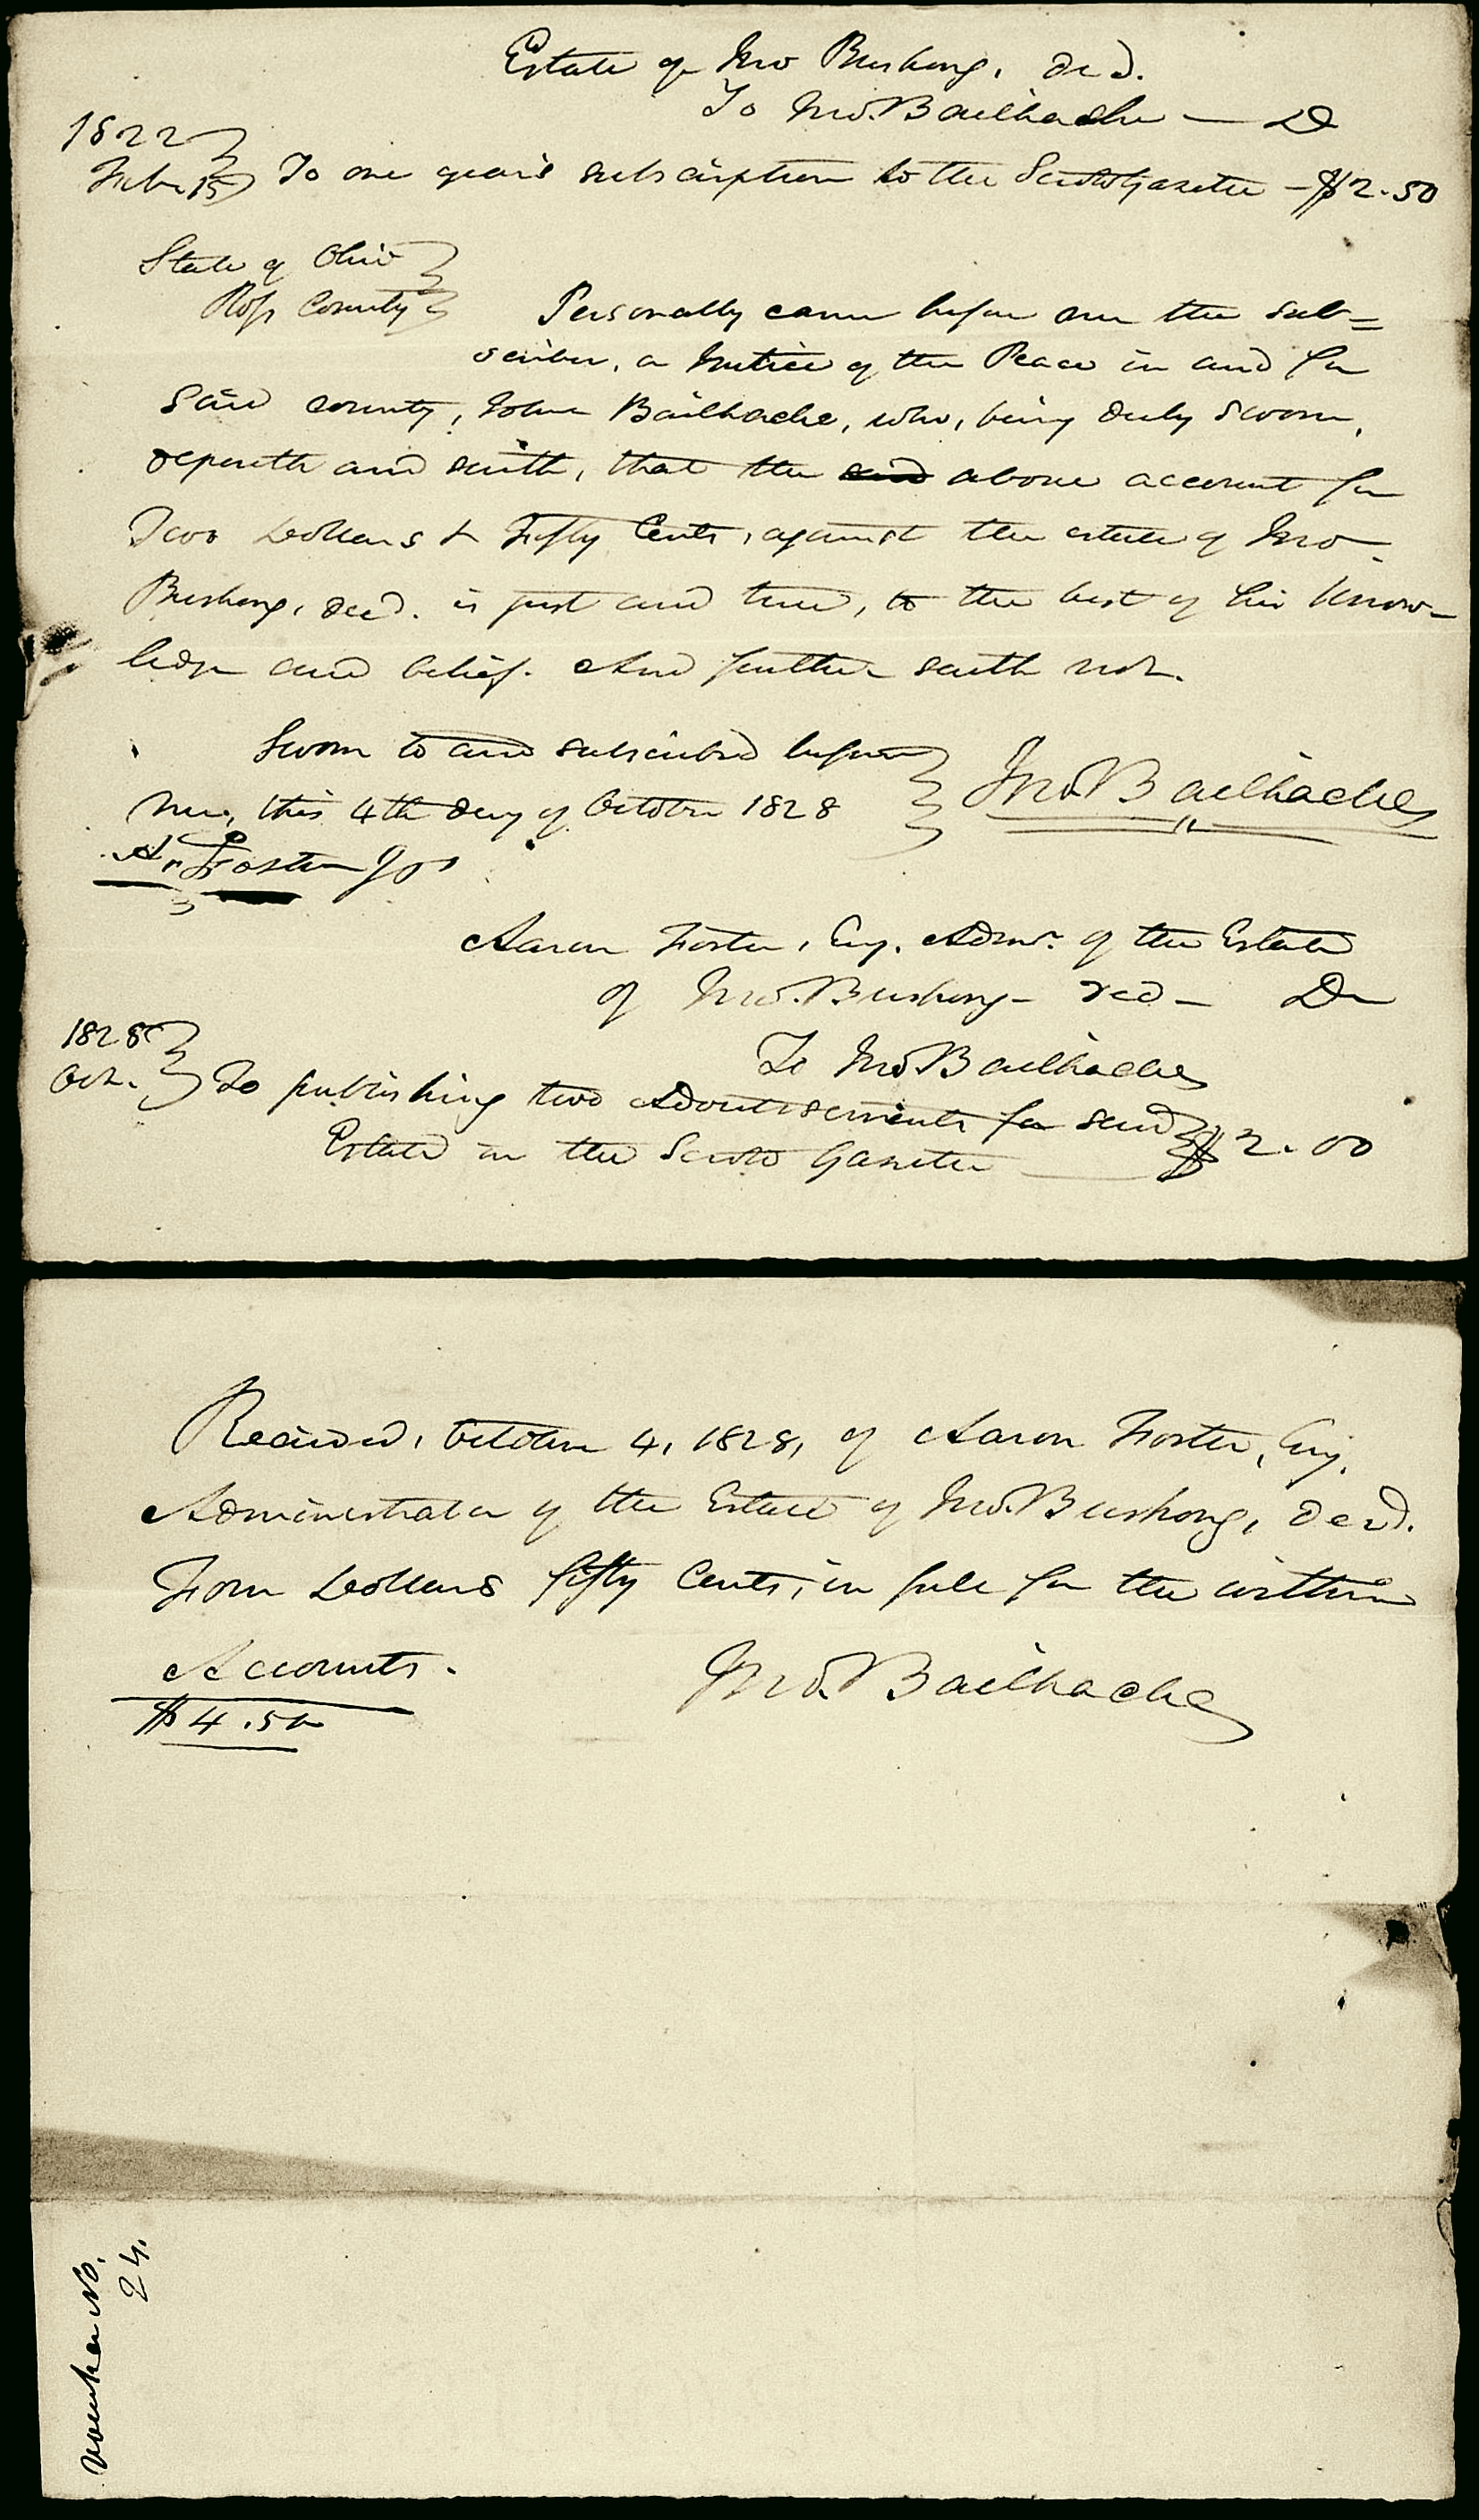 Estate of Jno Bushong, decd.
To Jno. Bailhache — Dr
1822
Feb. 15 To one year's subscription to the Scioto Gazette - $2.50
State of Ohio
Ross County
Personally came before me the sub=
scriber, a Justice of the Peace in and for
said county, John Bailhache, who, being duly sworn,
deposeth and saith, that the said above account for
Two Dollars & Fifty Cents, against the estate of Jno
Bushong, decd. is just and true, to the best of his know-
ledge and belief. And further saith not.
Sworn to and subscribed before
me, this 4th day of October 1828
Jno. Bailhache
A. Foster JP
Aaron Foster, Esq. Admr. of the Estate
of Jno. Bushong - decd - Dr
To Jno Bailhache
1828
Oct. To publishing two Advertisements for said
Estate in the Scioto Gazette $2.00
Received, October 4, 1828, of Aaron Foster, Esq.
Administrator of the Estate of Jno. Bushong, decd.
Four Dollars fifty Cents, in full for the within
Accounts.
Jno. Bailhache
$4.50
Voucher No.
24.